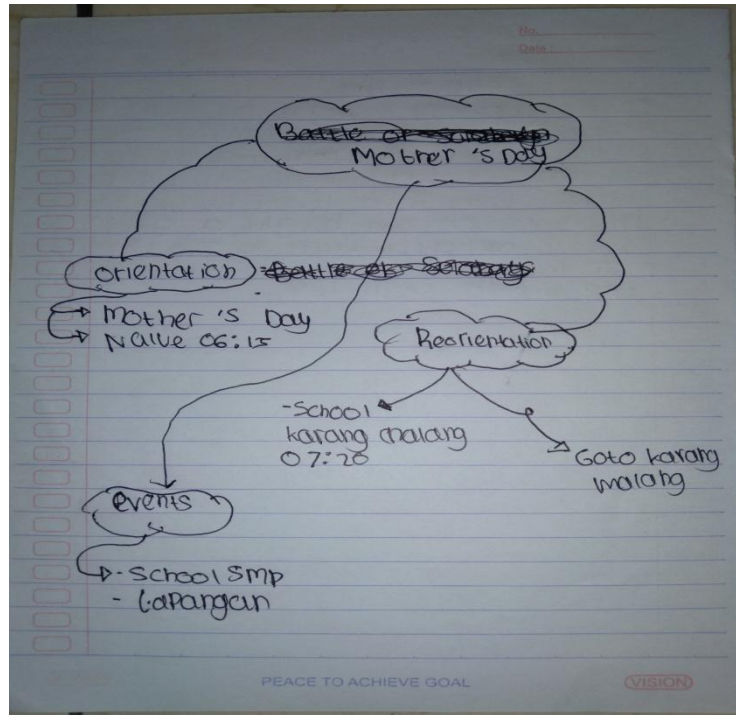 No.
Date :
Battle of Surabaya
Mother 's Day
orientation
Mother 's Day
Naive 06:15
Reorientation
-School
karang malang
07:20
Goto karang
malang
events
- School Smp
- Lapangan
PEACE TO ACHIEVE GOAL
VISION